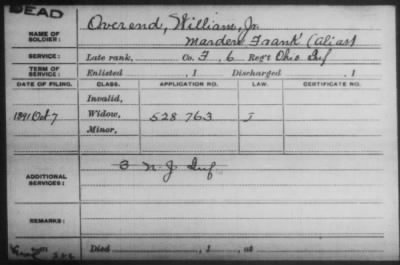 DEAD
NAME OF SOLDIER: Overend, William, Jr.
Marden Frank (Alias)
SERVICE: Late rank, Co. F, 6 Reg't Ohio Inf
TERM OF SERVICE: Enlisted , 1 Discharged , 1
DATE OF FILING. CLASS. APPLICATION NO. LAW. CERTIFICATE NO.
Invalid,
1891 Oct 7 Widow, 528 763
Minor,
ADDITIONAL SERVICES: 3 N. J. Inf
REMARKS:
Died , 1 , at